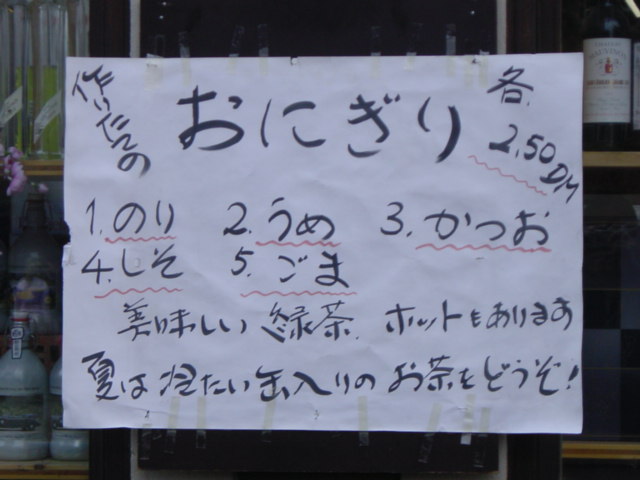 作りたての おにぎり 各 2,50 DM
1. のり 2. うめ 3. かつお
4. しそ 5. ごま
美味しい 緑茶 ホットもあります
夏は 冷たい 缶入りの お茶をどうぞ!